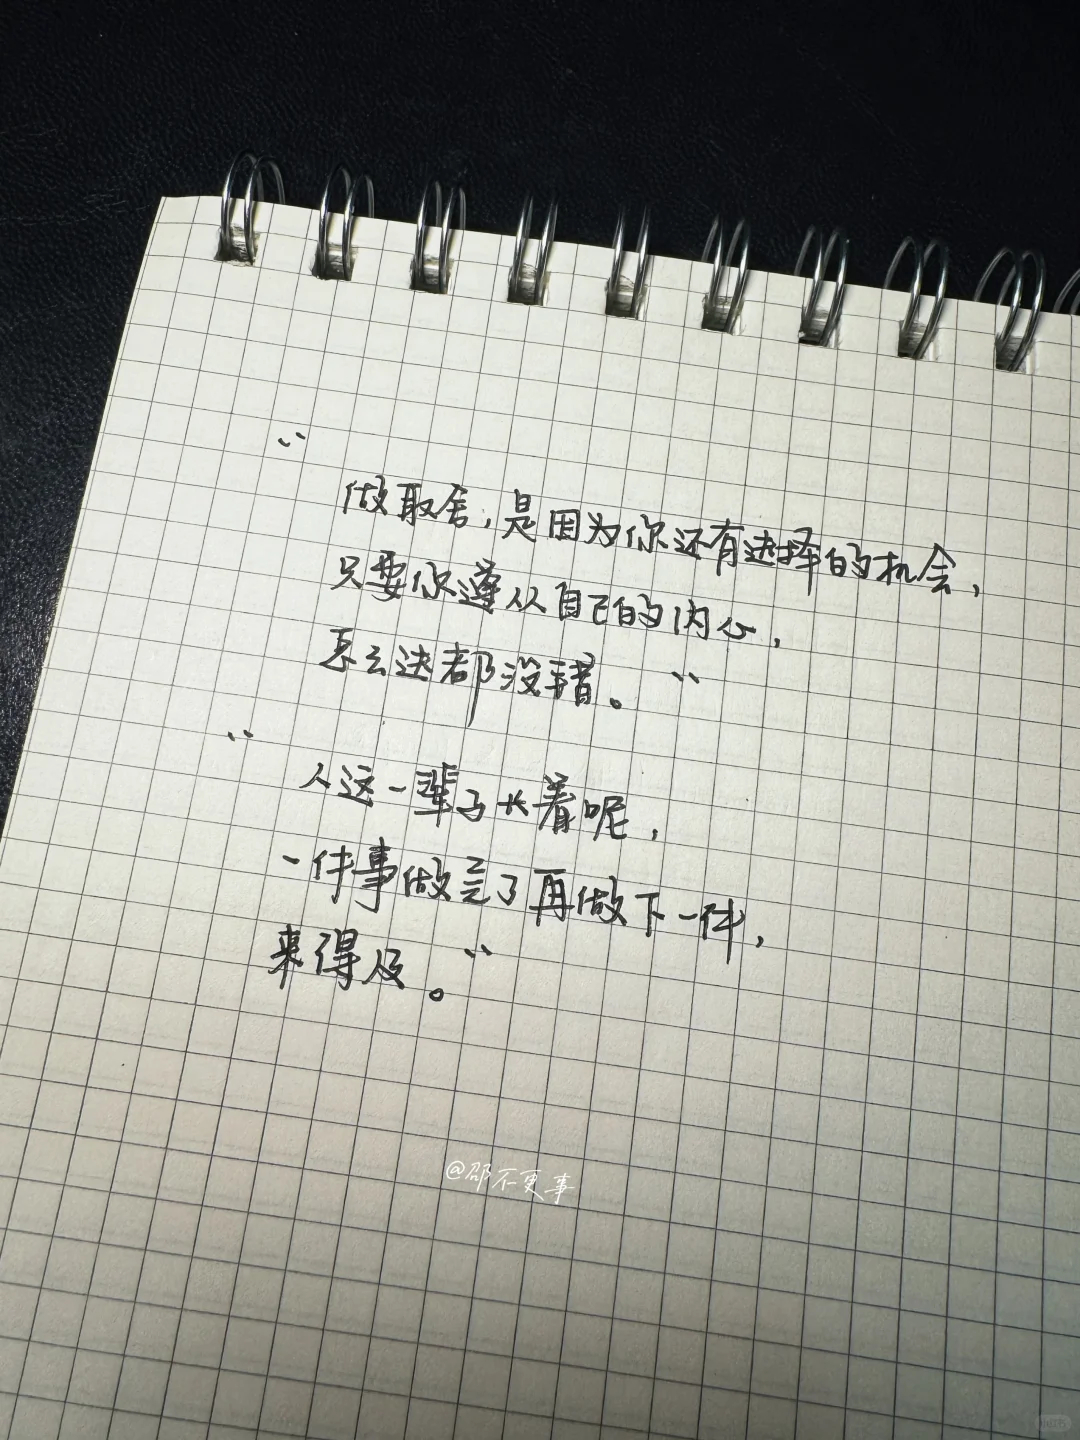 “
做取舍，是因为你还有选择的机会，
只要你遵从自己的内心，
怎么选都没错。”
“
人这一辈子长着呢，
一件事做完了再做下一件，
来得及。”
@邵不更事